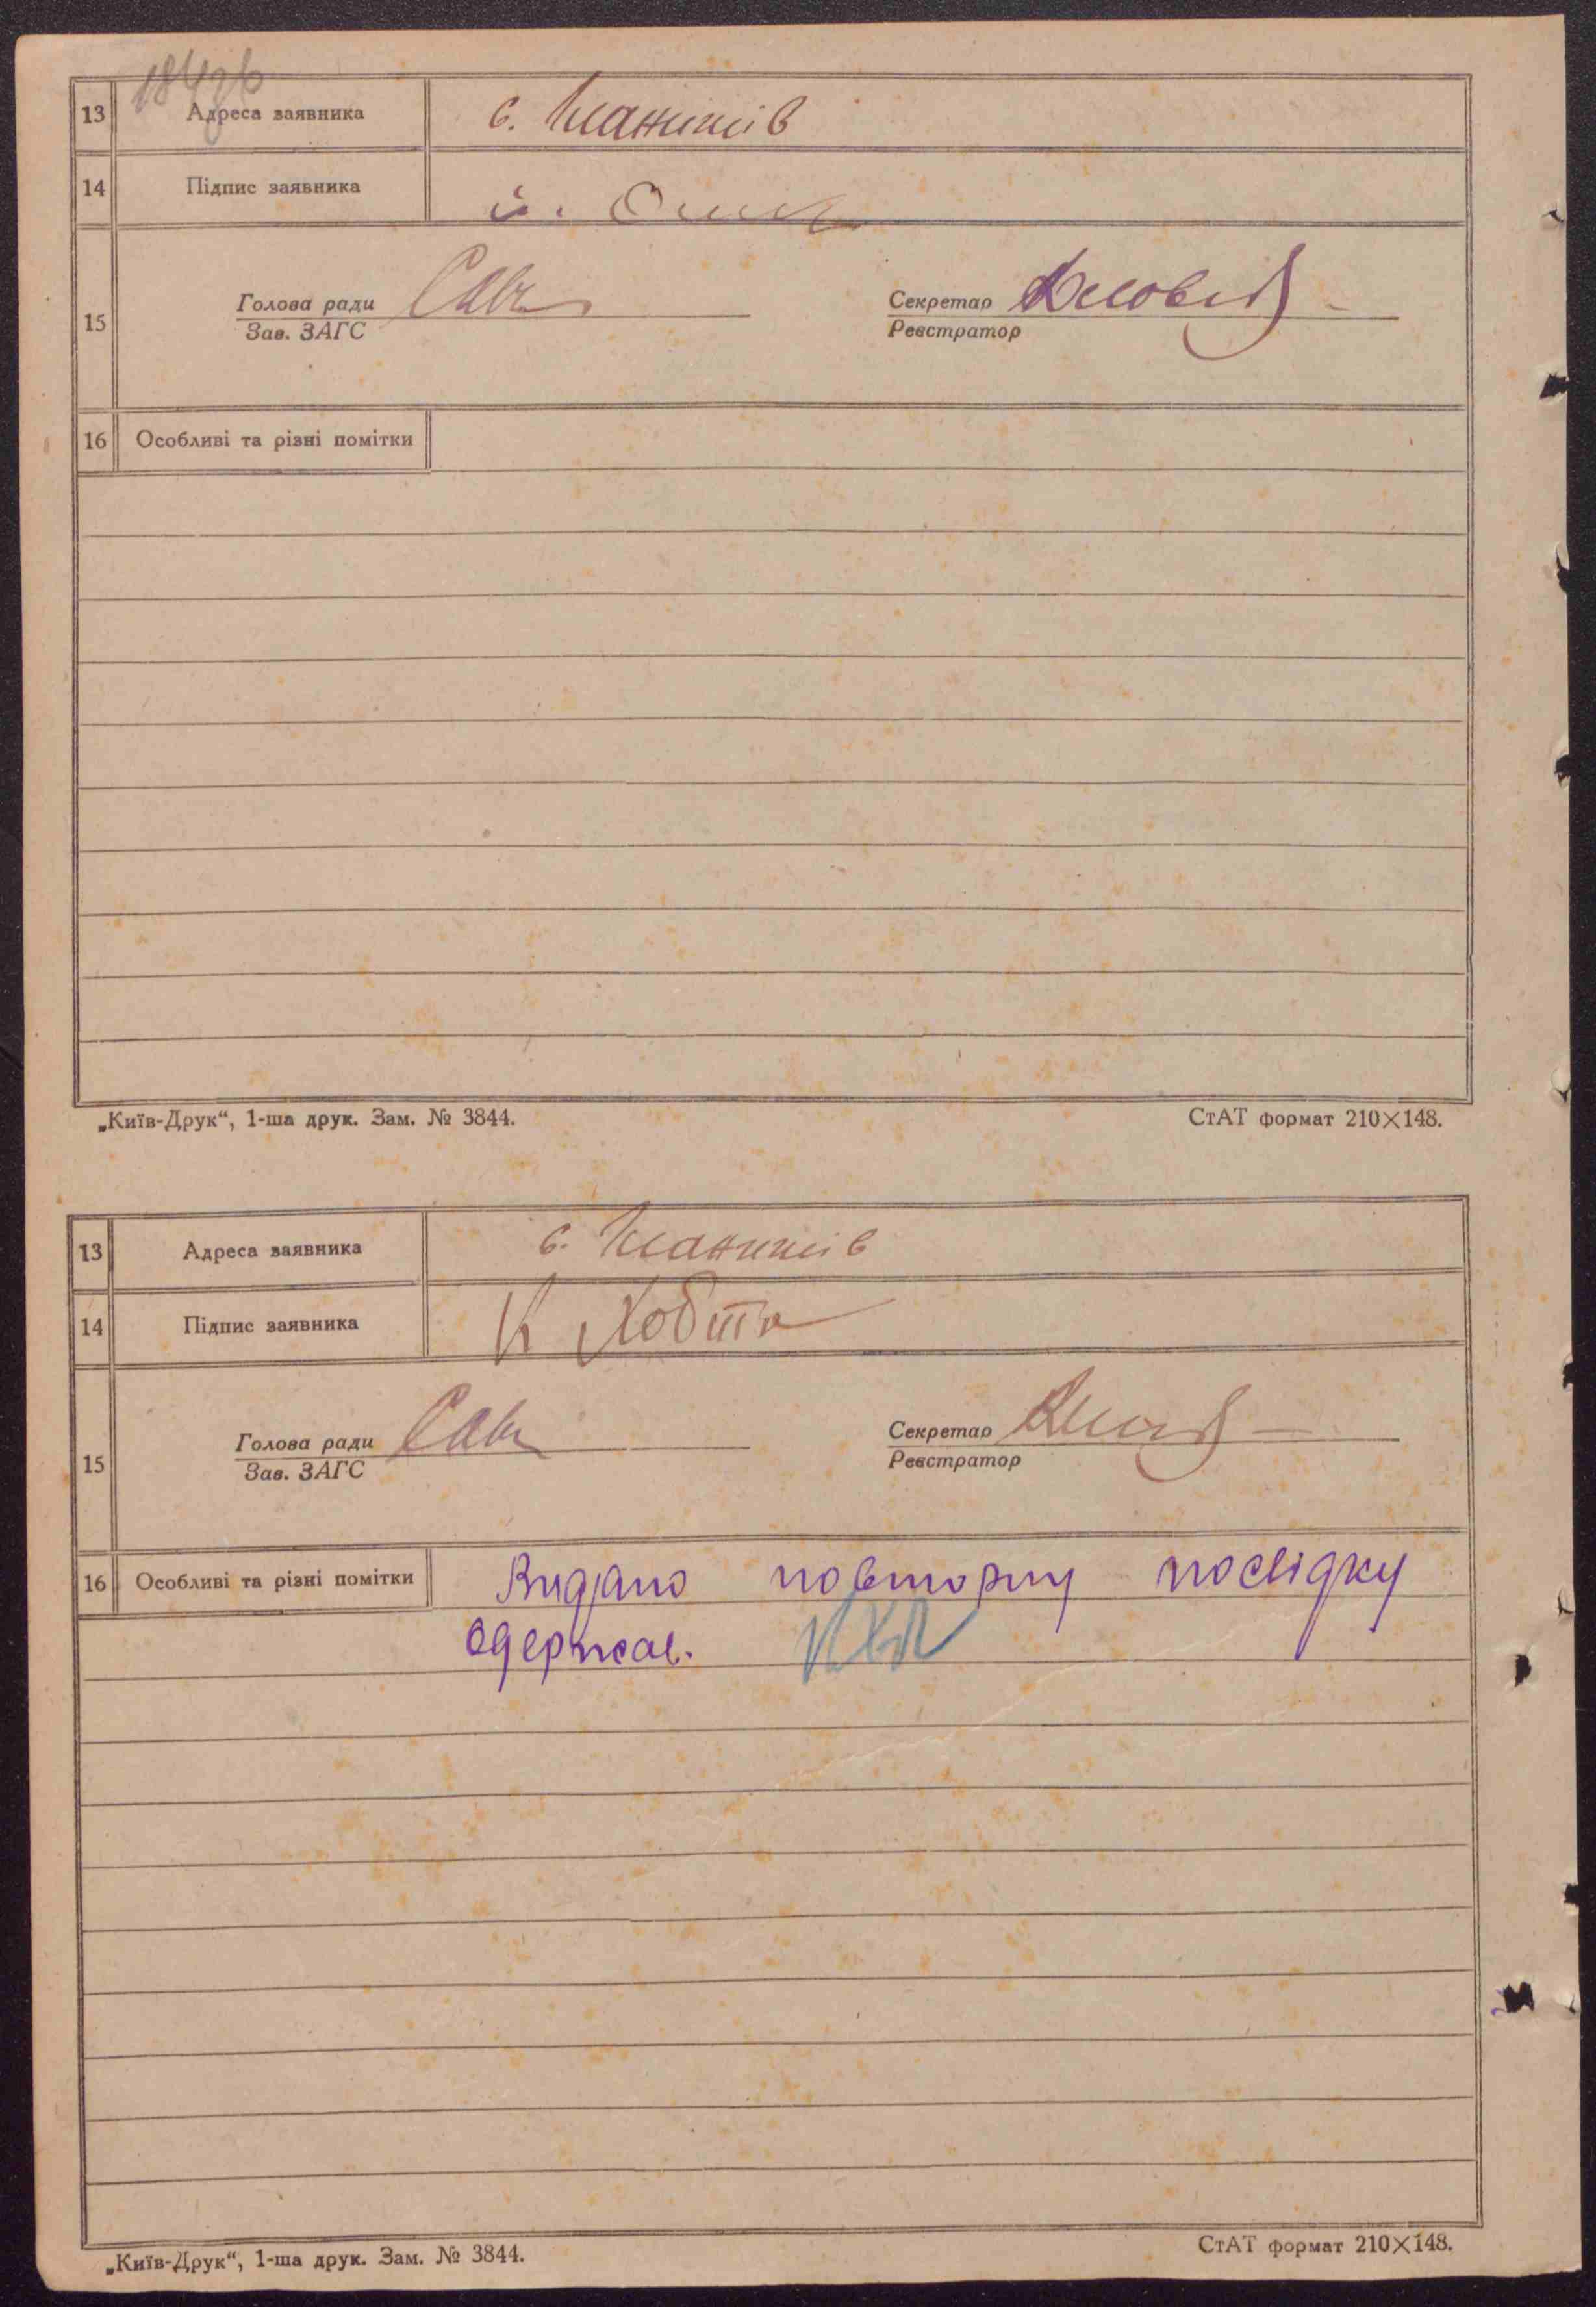 13 Адреса заявника с.
14 Підпис заявника
15 Голова ради Секретар
Зав. ЗАГС Реєстратор
16 Особливі та різні помітки
„Київ-Друк“, 1-ша друк. Зам. № 3844. СтАТ формат 210×148.
13 Адреса заявника с.
14 Підпис заявника К Хобта
15 Голова ради Секретар
Зав. ЗАГС Реєстратор
16 Особливі та різні помітки Видано повторну послідку
одержав.
„Київ-Друк“, 1-ша друк. Зам. № 3844. СтАТ формат 210×148.